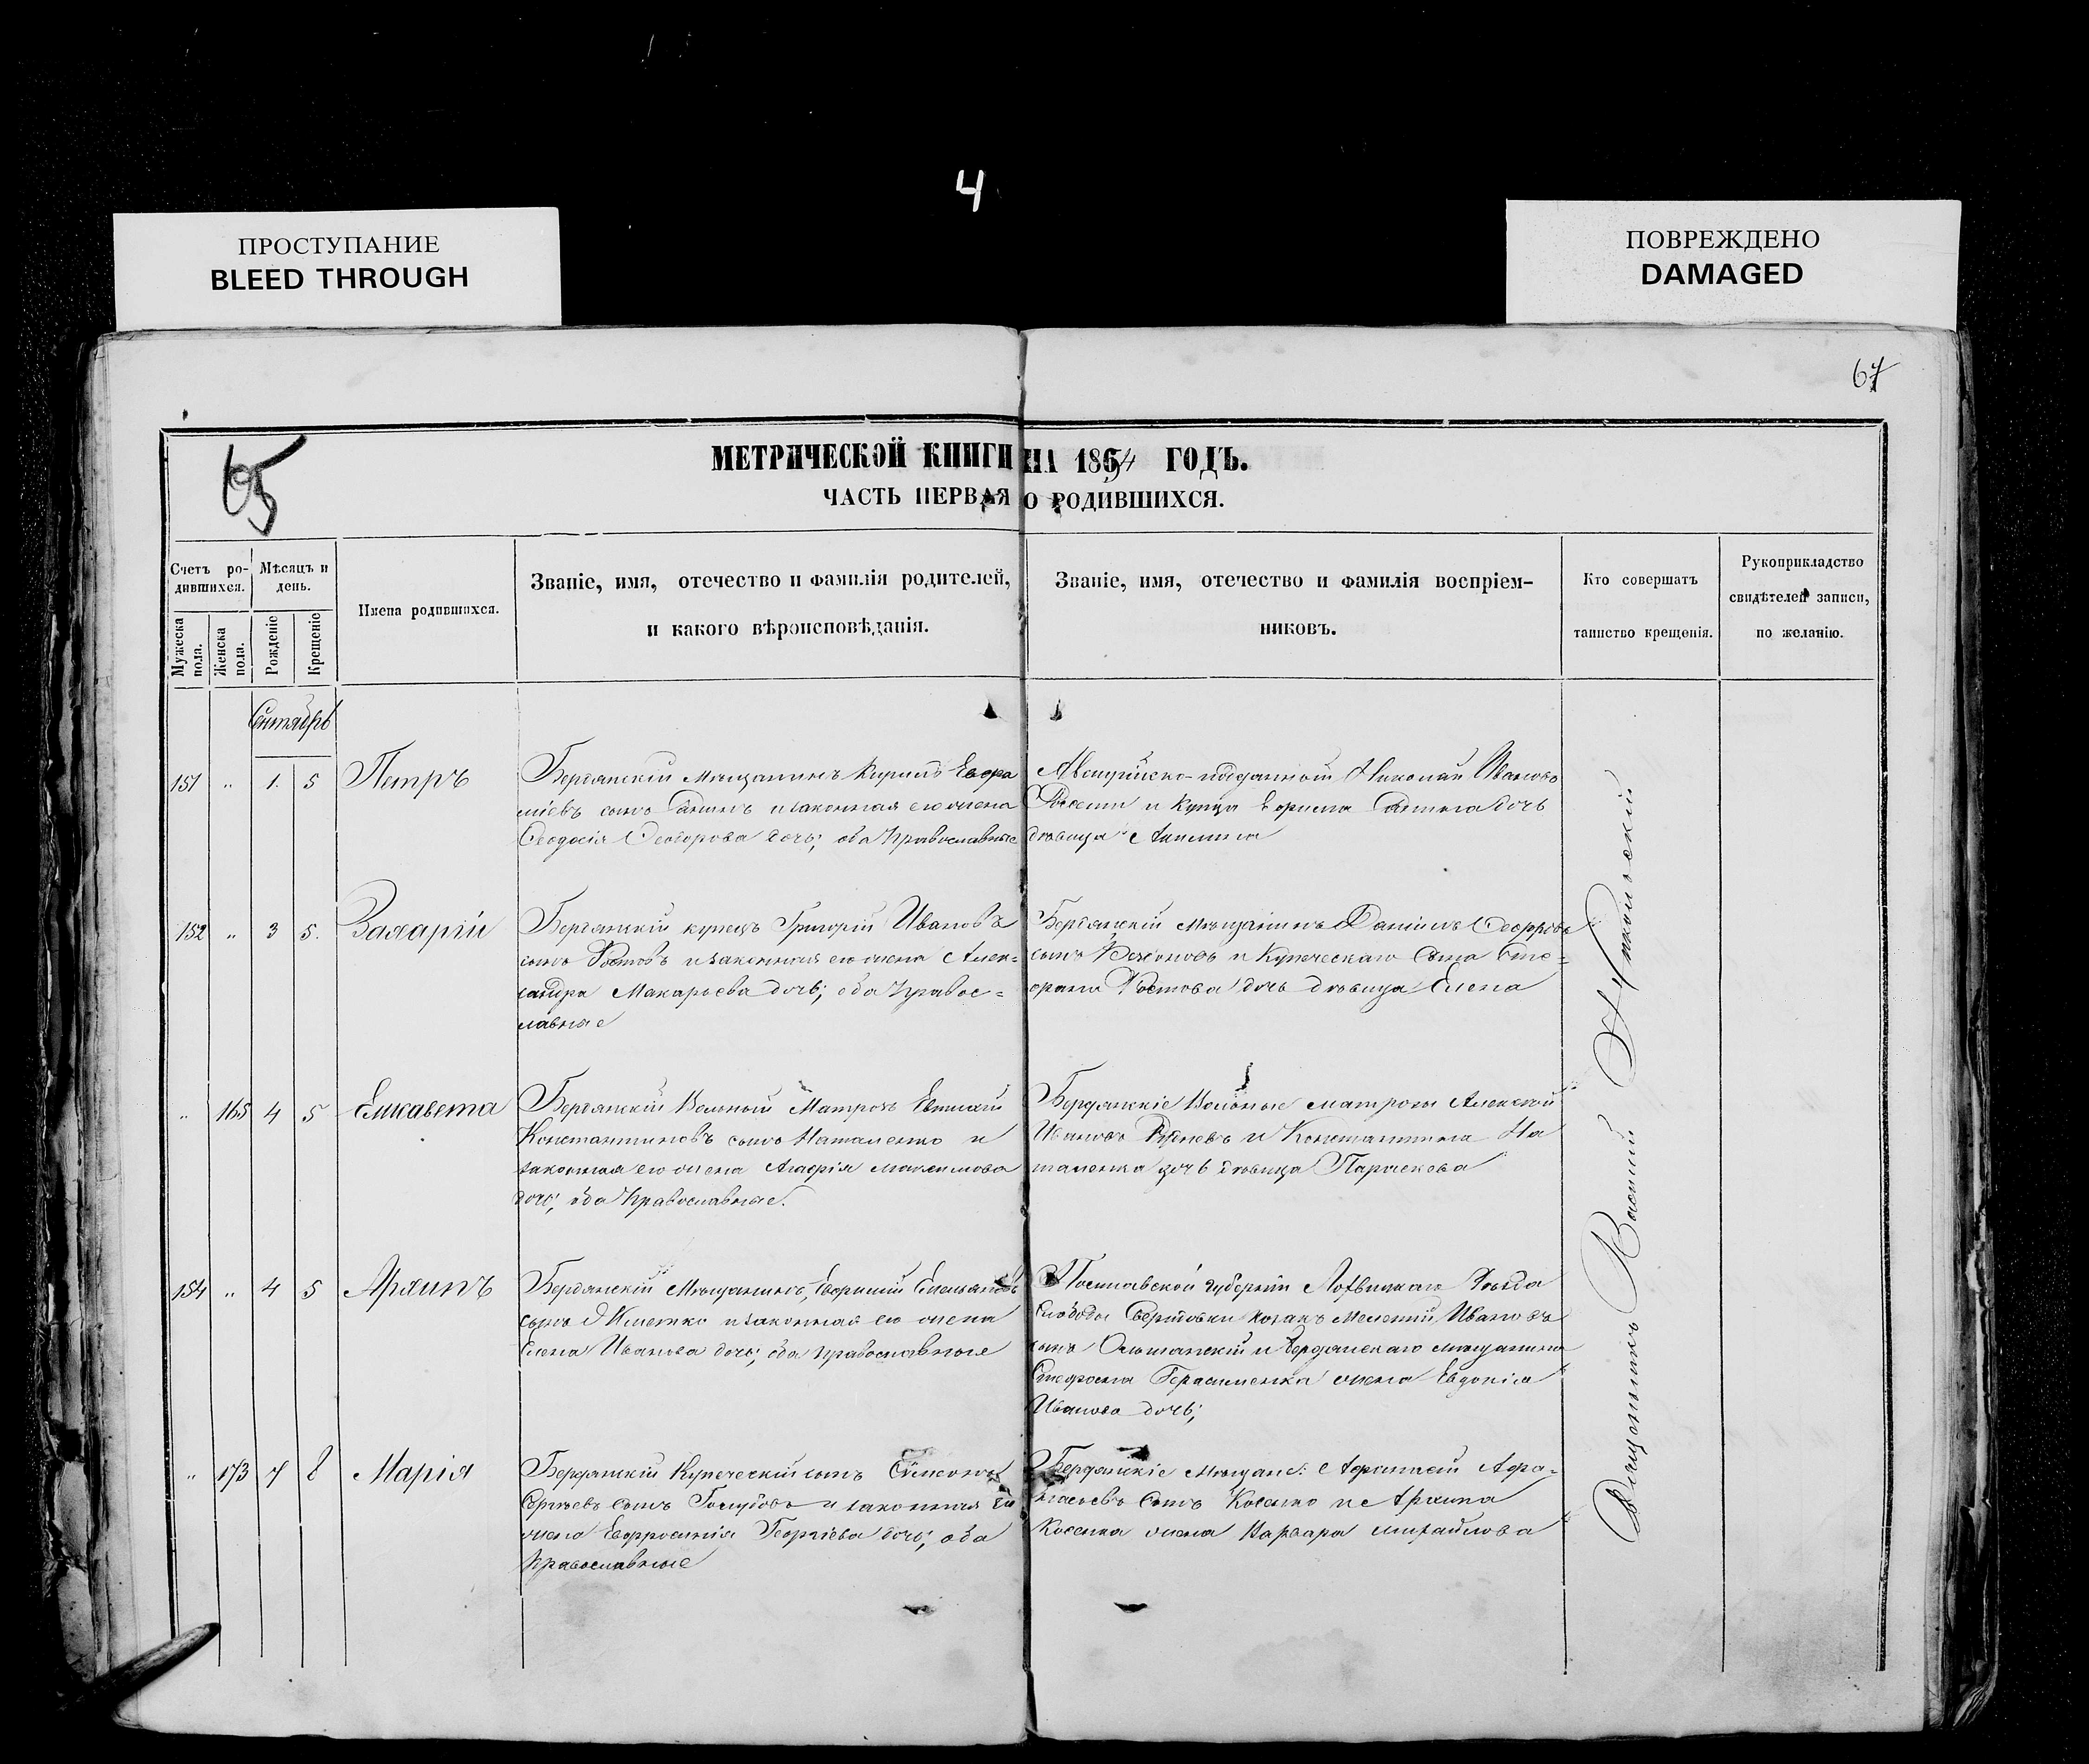 4
ПРОСТУПАНИЕ
BLEED THROUGH
ПОВРЕЖДЕНО
DAMAGED
67
65
МЕТРИЧЕСКОЙ КНИГИ НА 1864 ГОДЪ.
ЧАСТЬ ПЕРВАЯ О РОДИВШИХСЯ.
Счетъ ро-
дившихся.
Мужеска пола.
Женска пола.
Мѣсяцъ и
день.
Рожденіе
Крещеніе
Имена родившихся.
Званіе, имя, отечество и фамилія родителей,
и какого вѣроисповѣданія.
Званіе, имя, отечество и фамилія воспріем-
никовъ.
Кто совершалъ
таинство крещенія.
Рукоприкладство
свидѣтелей записи,
по желанію.
Сентябрь
151 " 1. 5 Петръ
Бердянскій Мѣщанинъ Кирилъ
сынъ и законная его жена
Феодосія Феодорова дочь; оба Православные
Австрійско-подданной Николай Ивановъ
и Купца дочь
дѣвица
152 " 3 5. Захарій
Бердянскій купецъ Григорій Ивановъ
сынъ Ростовъ и законная его жена Алек=
сандра Макарьева дочь; оба Правос=
лавные
Бердянскій Мѣщанинъ Даніилъ
сынъ и Купеческаго Сына Сте=
фана Ростова дочь дѣвица Елена
" 165 4 5 Елисавета
Бердянскій Вольный Матрозъ
Константиновъ сынъ Наталенко и
законная его жена Агафія Максимова
дочь; оба Православные.
Бердянскіе Вольные матрозы Алексей
Ивановъ и Константина На
таленка дочь дѣвица Параскева
154 " 4 5 Архипъ
Бердянскій Мѣщанинъ, Емельяновъ
сынъ и законная его жена
Елена Иванова дочь; оба православные
Полтавской губерніи Лохвицкаго Уѣзда
Слободы козакъ Мелетій Ивановъ
сынъ Ольшанскій и Бердянскаго мѣщанина
Герасименка жена Евдокія
Иванова дочь;
" 173 7 8 Марія
Бердянскій Купеческій сынъ
Сергѣевъ сынъ Голубовъ и законная его
жена Евфросинія Георгіева дочь; оба
Православные
Бердянскіе Мѣщане: Афанасій Афа=
насьевъ Сынъ Косенко и Архипа
Косенка жена Варвара Михайлова
Священникъ Василій